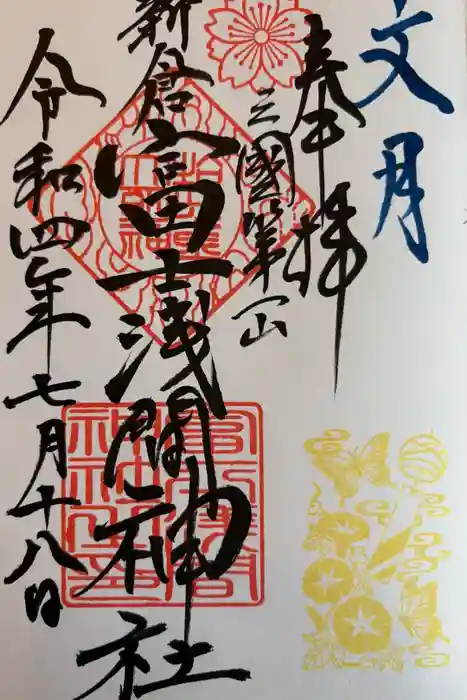 文月
奉拝
三國第一山
新倉富士浅間神社
令和四年七月十八日